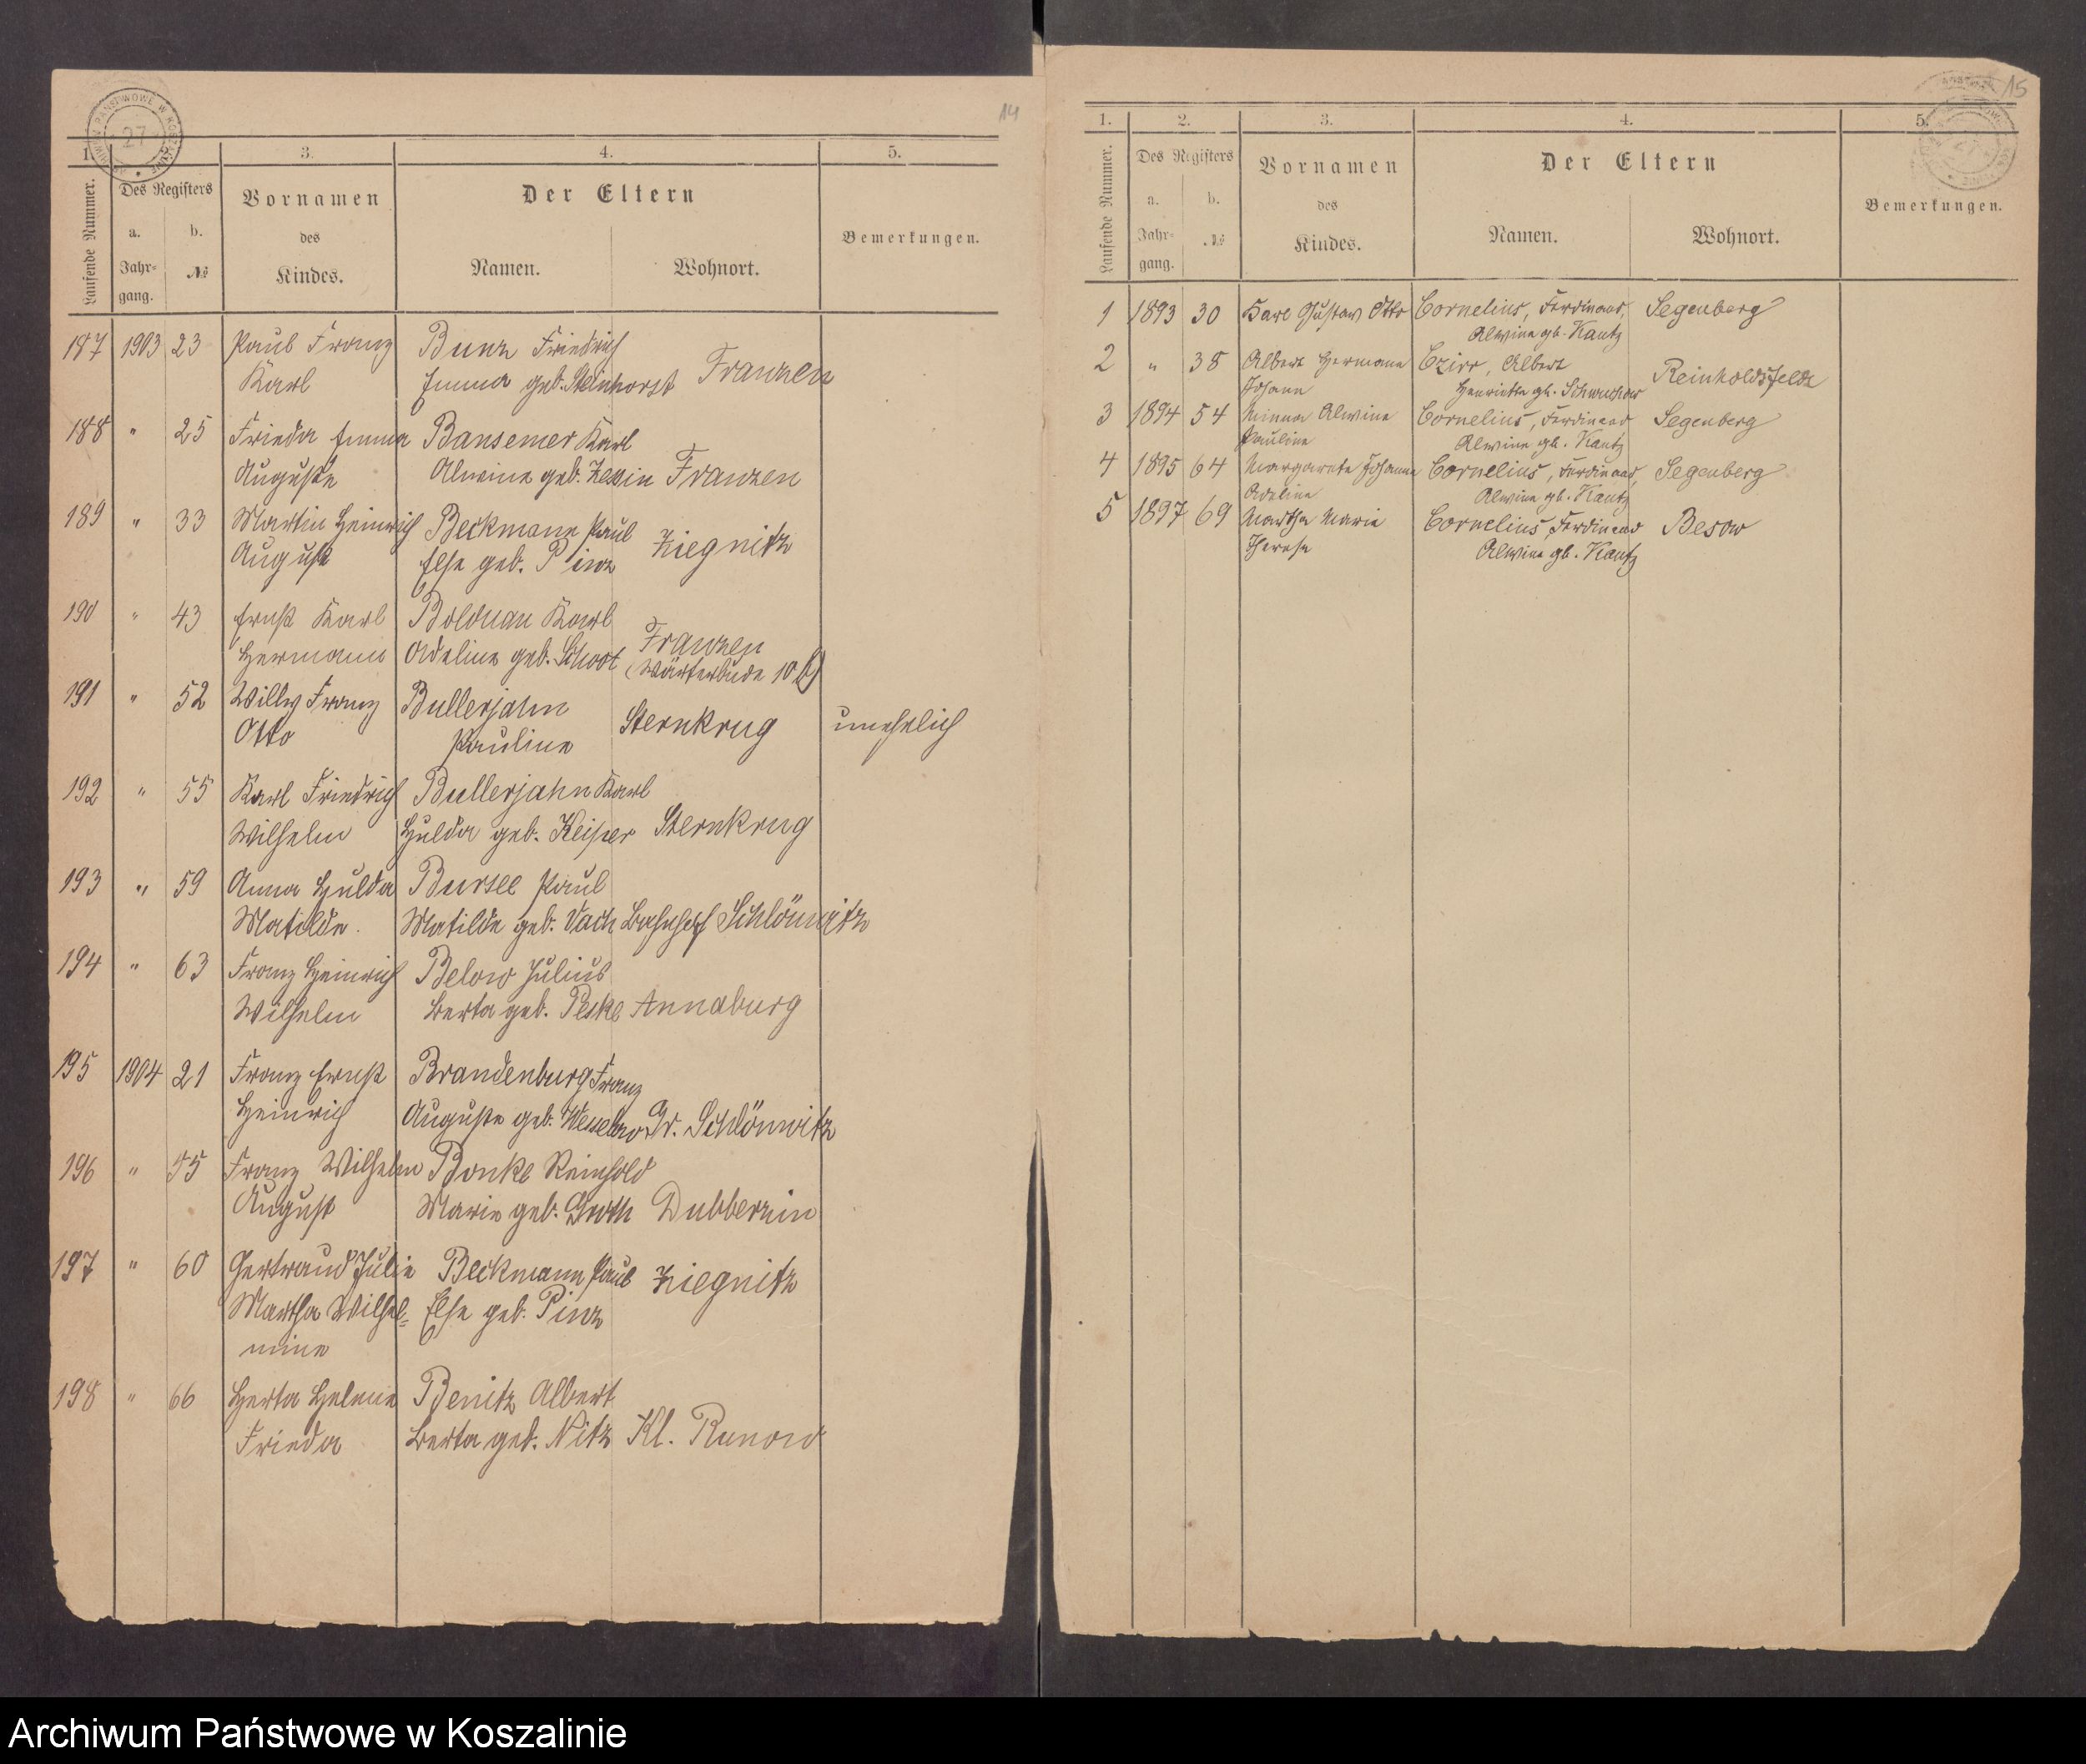 14
1. 3. 4. 5.
Laufende Nummer. Des Registers Vornamen des Kindes. Der Eltern Bemerkungen.
a. Jahrgang. b. № Namen. Wohnort.
187 1903 23 Paul Franz Bunz Friedrich
Karl Emma geb. Steinhorst Franzen
188 " 25 Frieda Emma Bansemer Karl
Auguste Alwine geb. Franzen
189 " 33 Martin Heinrich Beckmann Paul
August Else geb. Pinz Ziegnitz
190 " 43 Ernst Karl Bolduan Karl
Hermann Adeline geb. Schost Franzen
(Wärterbude 10
191 " 52 Willy Franz Bullerjahn
Otto Pauline Sternkrug unehelich
192 " 55 Karl Friedrich Bullerjahn Karl
Wilhelm Hulda geb. Sternkrug
193 " 59 Anna Hulda Paul
Matilde. Matilde geb. Vach Bahnhof Schlönwitz
194 " 63 Franz Heinrich Below Julius
Wilhelm Berta geb. Peske Annaburg
195 1904 21 Franz Ernst Brandenburg Franz
Heinrich Auguste geb. Gr. Schlönwitz
196 " 55 Franz Wilhelm Bonke Reinhold
August Marie geb. Groth Dubberzin
197 " 60 Gertraud Julie Beckmann Paul Ziegnitz
Martha Wilhel= Else geb. Pinz
mine
198 " 66 Herta Helene Benitz Albert
Frieda Berta geb. Nitz Kl. Runow
15
1. 2. 3. 4. 5.
Laufende Nummer. Des Registers Vornamen des Kindes. Der Eltern Bemerkungen.
a. Jahrgang. b. № Namen. Wohnort.
1 1893 30 Karl Gustav Otto Cornelius, Ferdinand, Segenberg
Alwine gb. Kautz
2 " 38 Albert Hermann Czirr, Albert Reinholdsfelde
Johann Henriette gb.
3 1894 54 Minna Alwine Cornelius, Ferdinand Segenberg
Pauline Alwine gb. Kautz
4 1895 64 Margarete Johanna Cornelius, Ferdinand, Segenberg
Adeline Alwine gb. Kautz
5 1897 69 Martha Marie Cornelius, Ferdinand Besow
Therese Alwine gb. Kautz
Archiwum Państwowe w Koszalinie